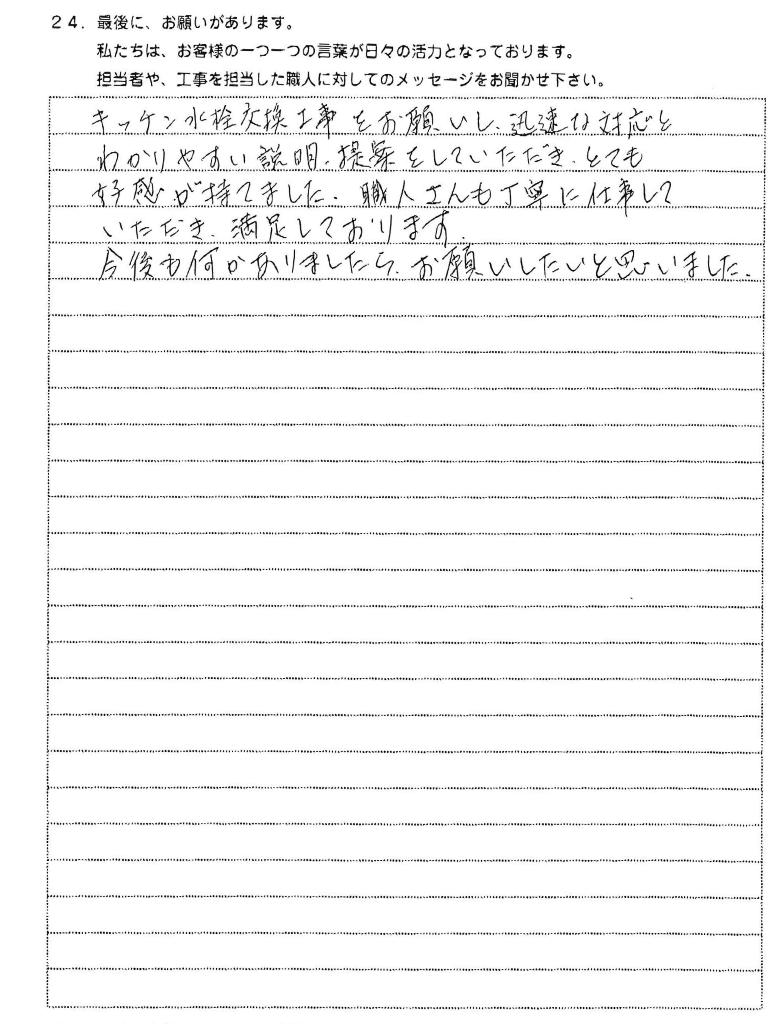 24．最後に、お願いがあります。
私たちは、お客様の一つ一つの言葉が日々の活力となっております。
担当者や、工事を担当した職人に対してのメッセージをお聞かせ下さい。
キッチン水栓交換工事をお願いし、迅速な対応と
わかりやすい説明、提案をしていただき、とても
好感が持てました。職人さんも丁寧に仕事して
いただき、満足しております。
今後も何かありましたら、お願いしたいと思いました。